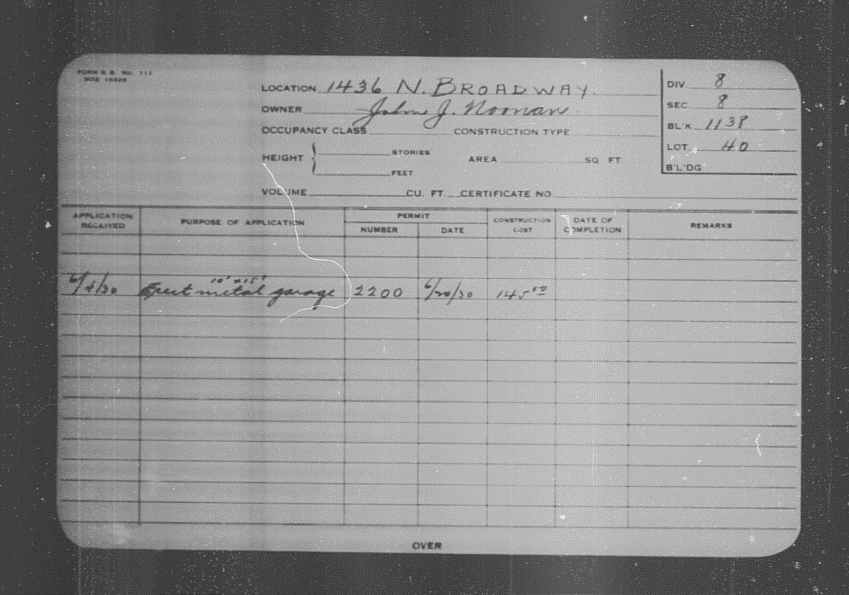 FORM B.B. NO. 111
LOCATION 1436 N. BROADWAY.
OWNER John J. Noonan.
OCCUPANCY CLASS CONSTRUCTION TYPE
HEIGHT { STORIES AREA SQ FT
FEET
VOLUME CU. FT. CERTIFICATE NO.
DIV. 8
SEC. 8
BL'K 1138
LOT. 40
B'L'DG
APPLICATION RECEIVED PURPOSE OF APPLICATION PERMIT NUMBER DATE CONSTRUCTION COST DATE OF COMPLETION REMARKS
10' x 15'
Erect metal garage 2200 6/20/30 145.00
OVER